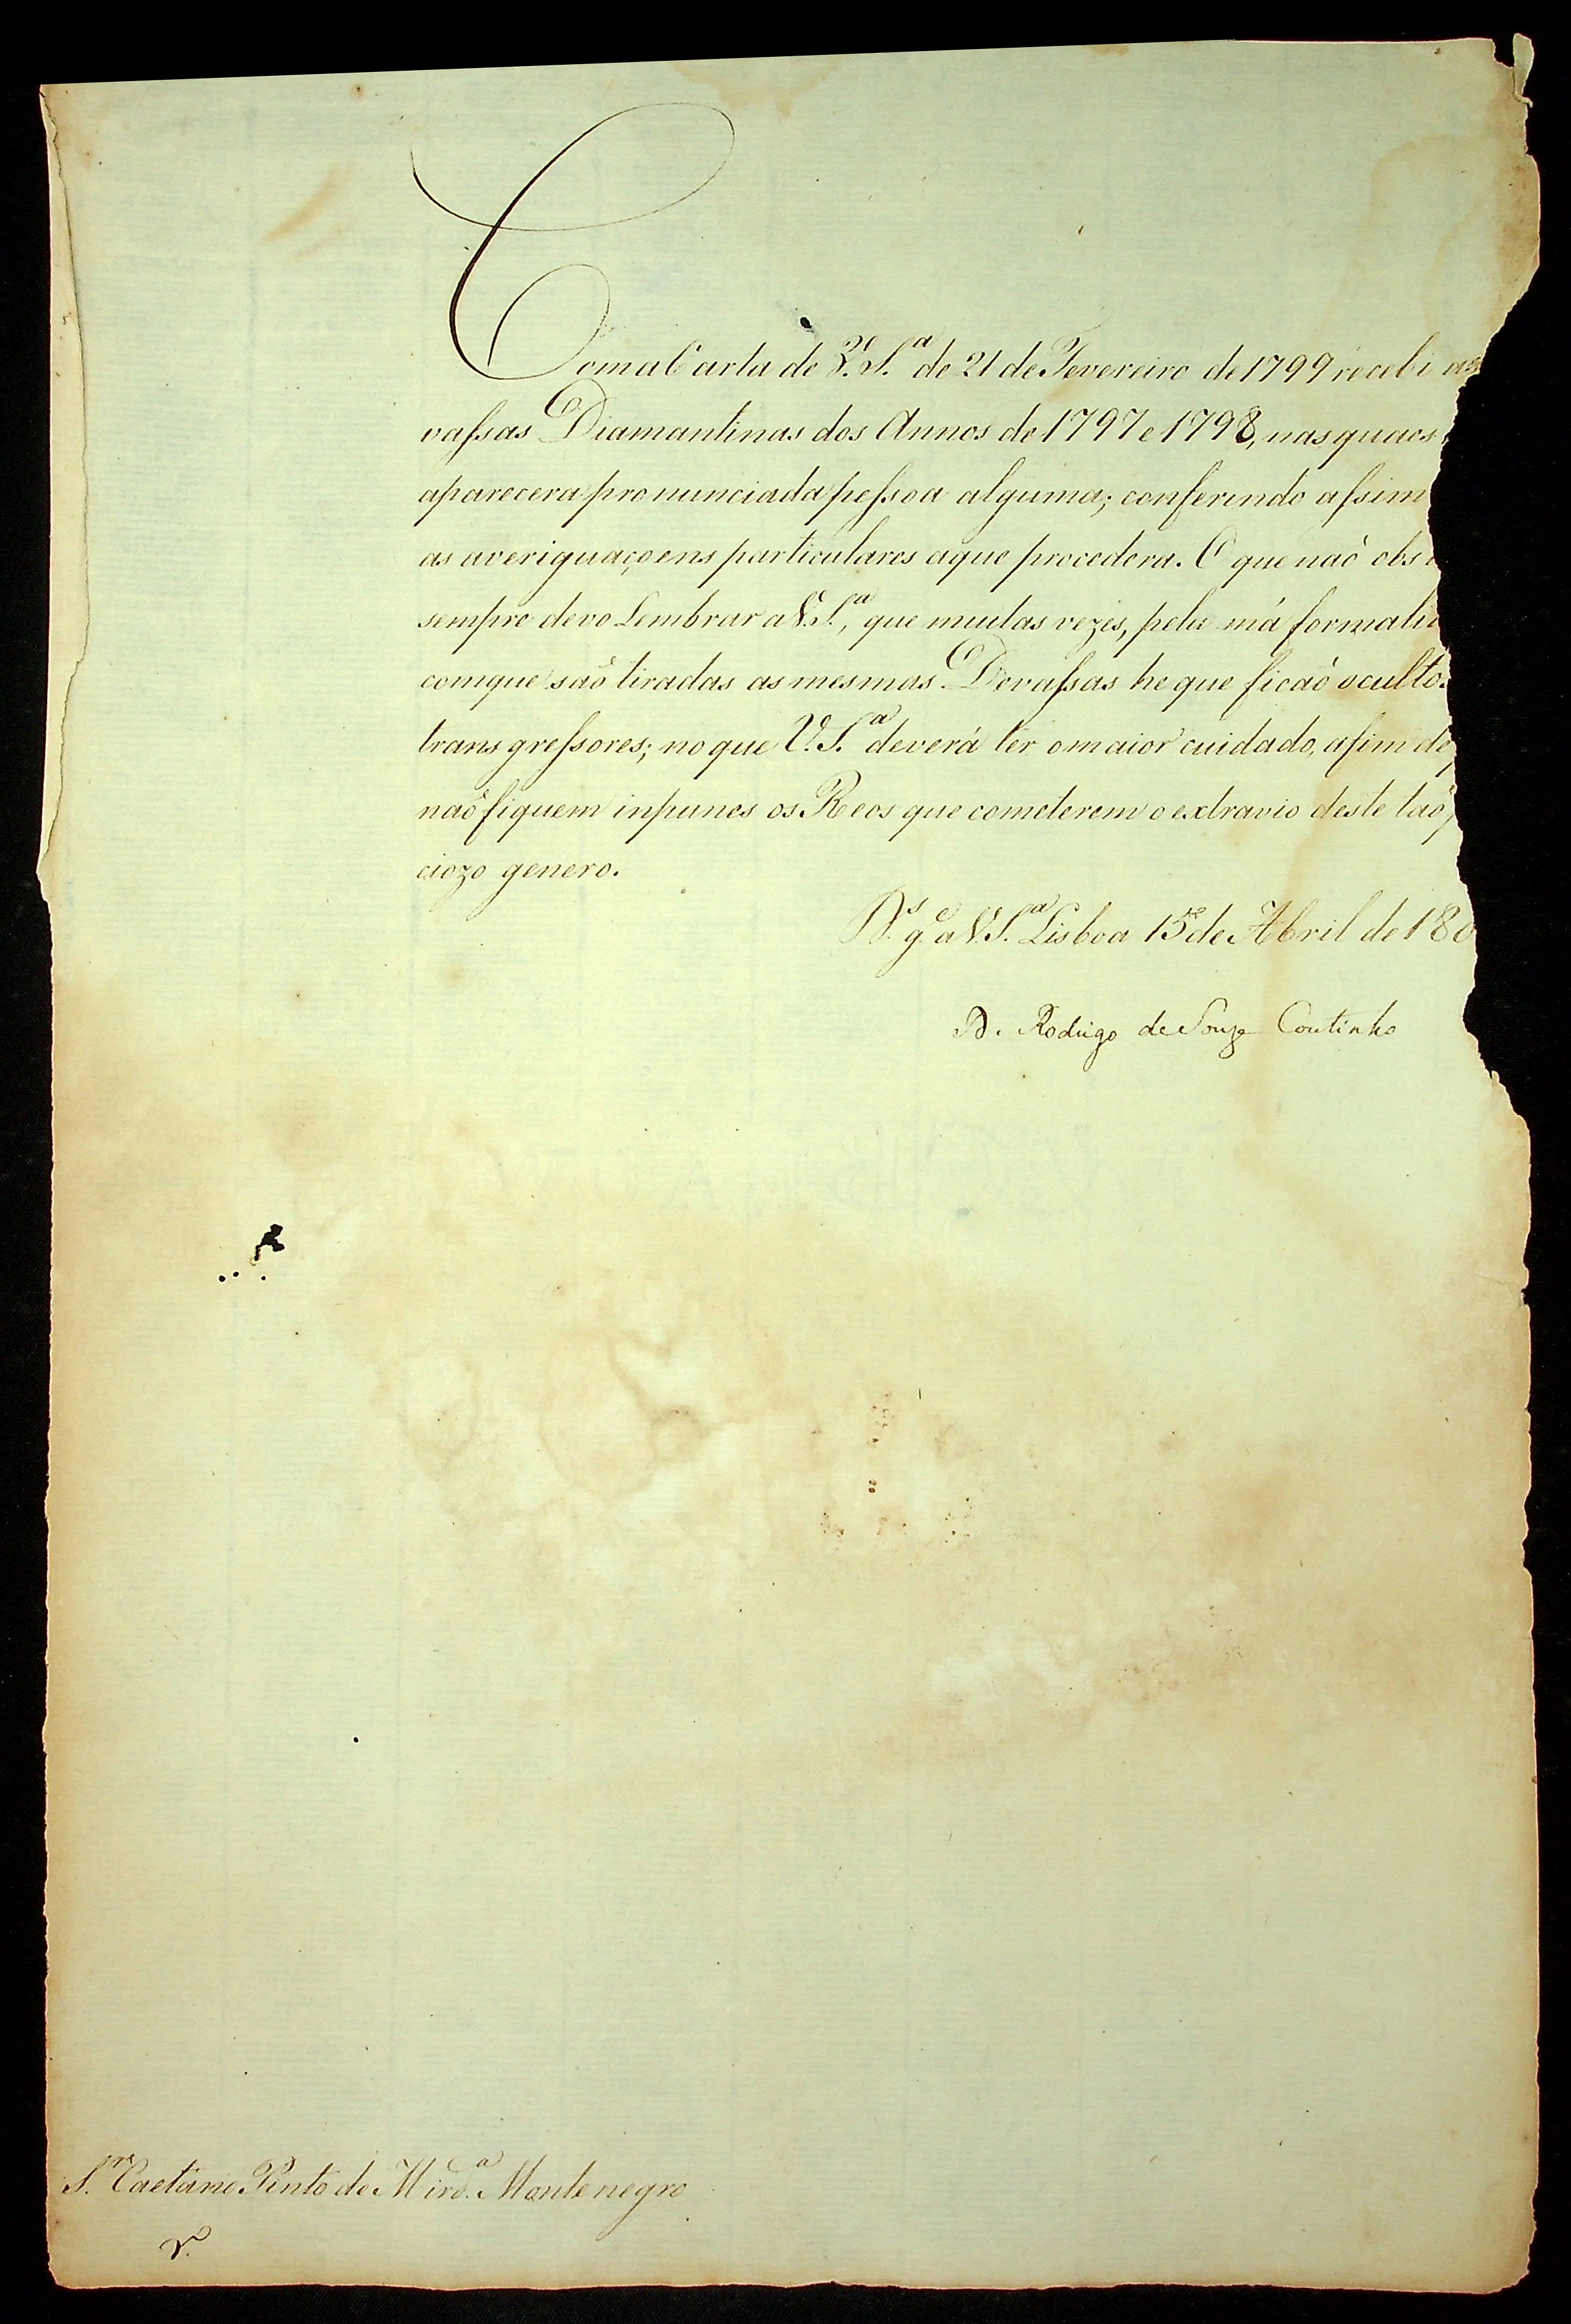 Com a Carta de V. S.ª de 21 de Fevereiro de 1799 recebi as
vassas Diamantinas dos Annos de 1797 e 1798, nas quaes
aparecera pronunciada pessoa alguma; conferindo assim
as averiguaçoens particulares aque procedera. O que naõ obs
sempre devo Lembrar a V. S.ª, que muitas vezes, pela má formali
comque saõ tiradas as mesmas Devassas he que ficaõ oculto
transgressores; no que V. S.ª deverá ter o maior cuidado, afim de
naõ fiquem inpunes os Reos que cometerem o extravio deste taõ
ciozo genero.
D.s g.e a V. S.ª Lisboa 15 de Abril de 180
D. Rodrigo de Souza Coutinho
S.r Caetano Pinto de Mird.ª Montenegro